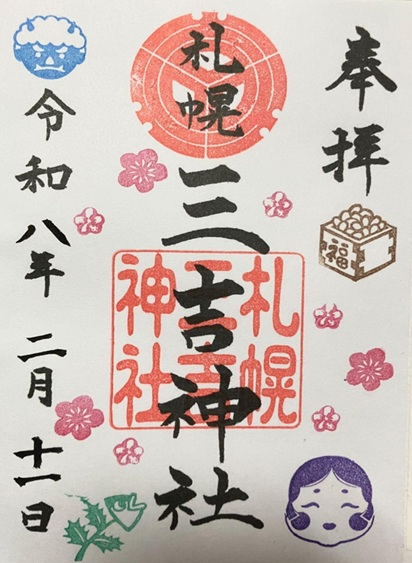 奉拝
札幌
三吉神社
札幌
三吉
神社
福
令和八年二月十一日